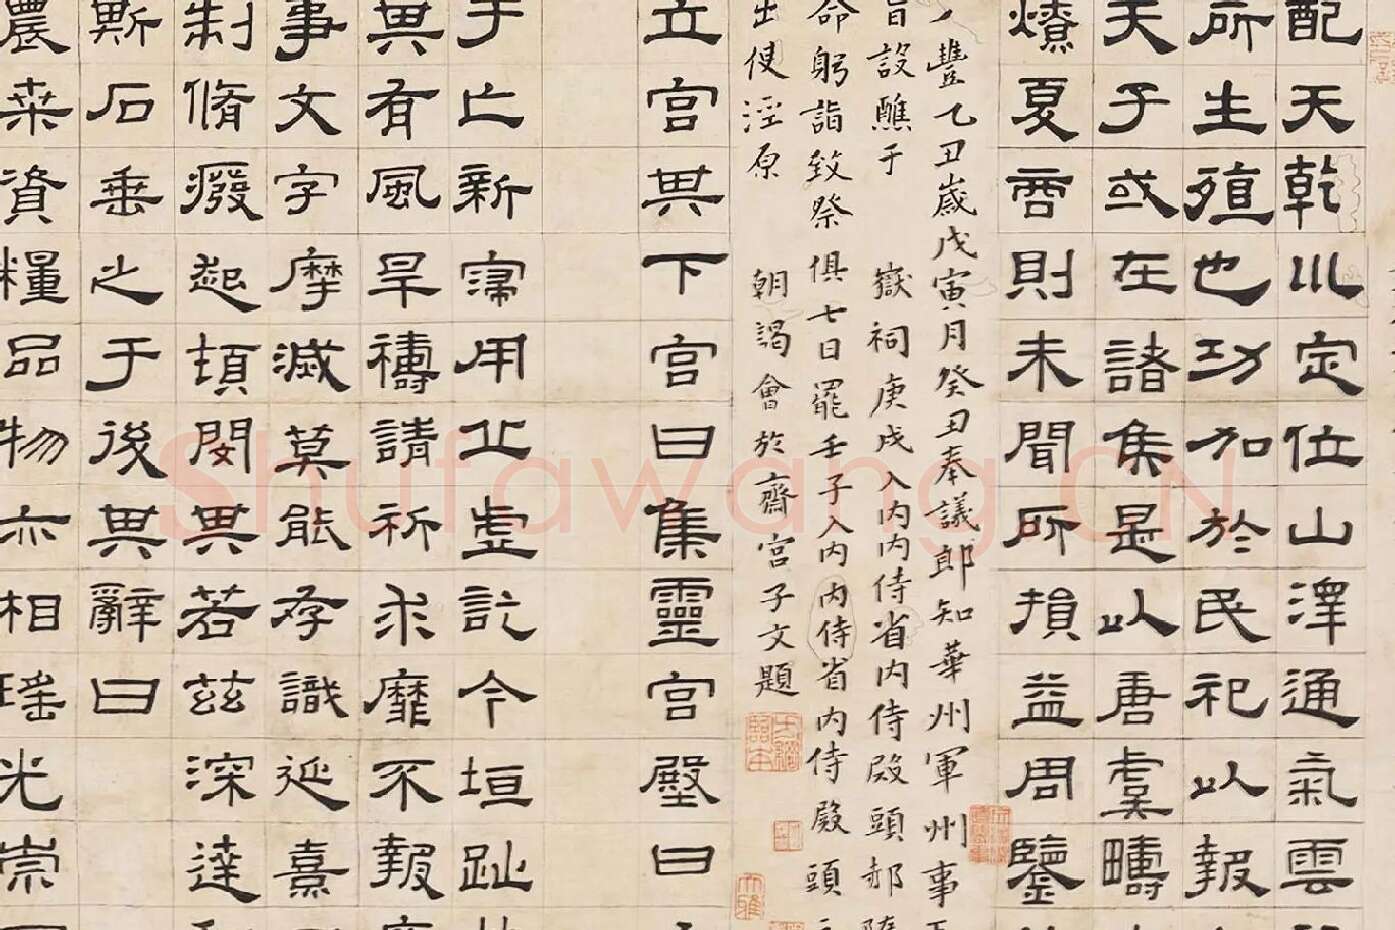 配天乾川定位山澤通氣雲
所生殖也功加於民祀以報
天子或在諸集是以唐虞疇
燎夏商則未聞所損益周鑒
豐乙丑歲戊寅月癸丑奉議郎知華州軍州事
旨設醮于 嶽祠庚戌入内内侍省内侍殿頭郝
命躬詣致祭俱七日罷壬子入内内侍省内侍殿頭
出使涇原 朝謁會於齋宮子文題
立宮其下宮曰集靈宮殿曰
于亡新寖用丘虛訖今垣趾
其有風旱禱請祈求靡不報
事文字摩滅莫能存識延熹
制脩癈起頓閔其若茲深達
斯石垂之于後其辭曰
農桒資糧品物亦相瑤光崇
Shufawang.CN